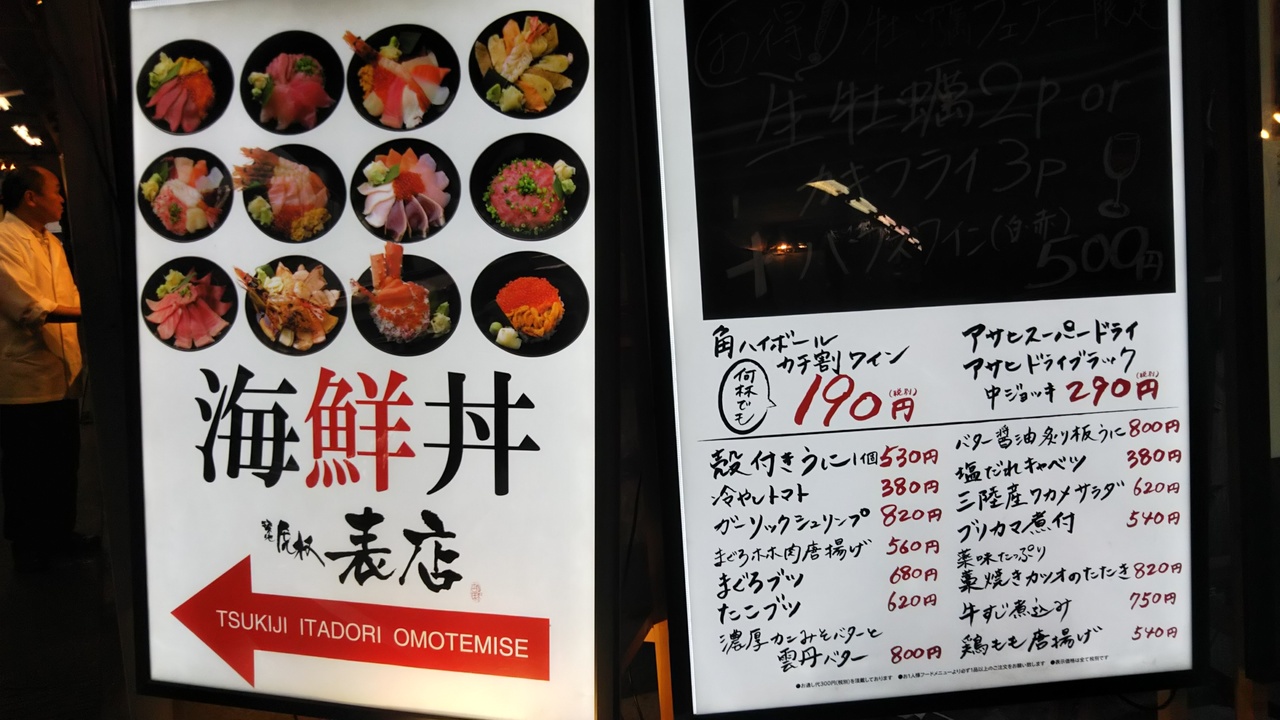 海鮮丼
築地虎杖 表店
TSUKIJI ITADORI OMOTEMISE
お得! 生牡蠣フェアー限定
生牡蠣2P or
カキフライ3P
+ グラスワイン(白・赤)
500円
角ハイボール
カチ割ワイン
何杯でも
190円(税別)
アサヒスーパードライ
アサヒドライブラック
中ジョッキ 290円(税別)
殻付きうに1個 530円
冷やしトマト 380円
ガーリックシュリンプ 820円
まぐろホホ肉唐揚げ 560円
まぐろブツ 680円
たこブツ 620円
濃厚カニみそバターと
雲丹バター 800円
バター醤油炙り板うに 800円
塩だれキャベツ 380円
三陸産ワカメサラダ 620円
ブリカマ煮付 540円
薬味たっぷり
藁焼きカツオのたたき 820円
牛すじ煮込み 750円
鶏もも唐揚げ 540円
●お通し代300円(税別)を頂戴しております ●お1人様フードメニューより必ず1品以上のご注文をお願い致します ●表示価格は全て税別です